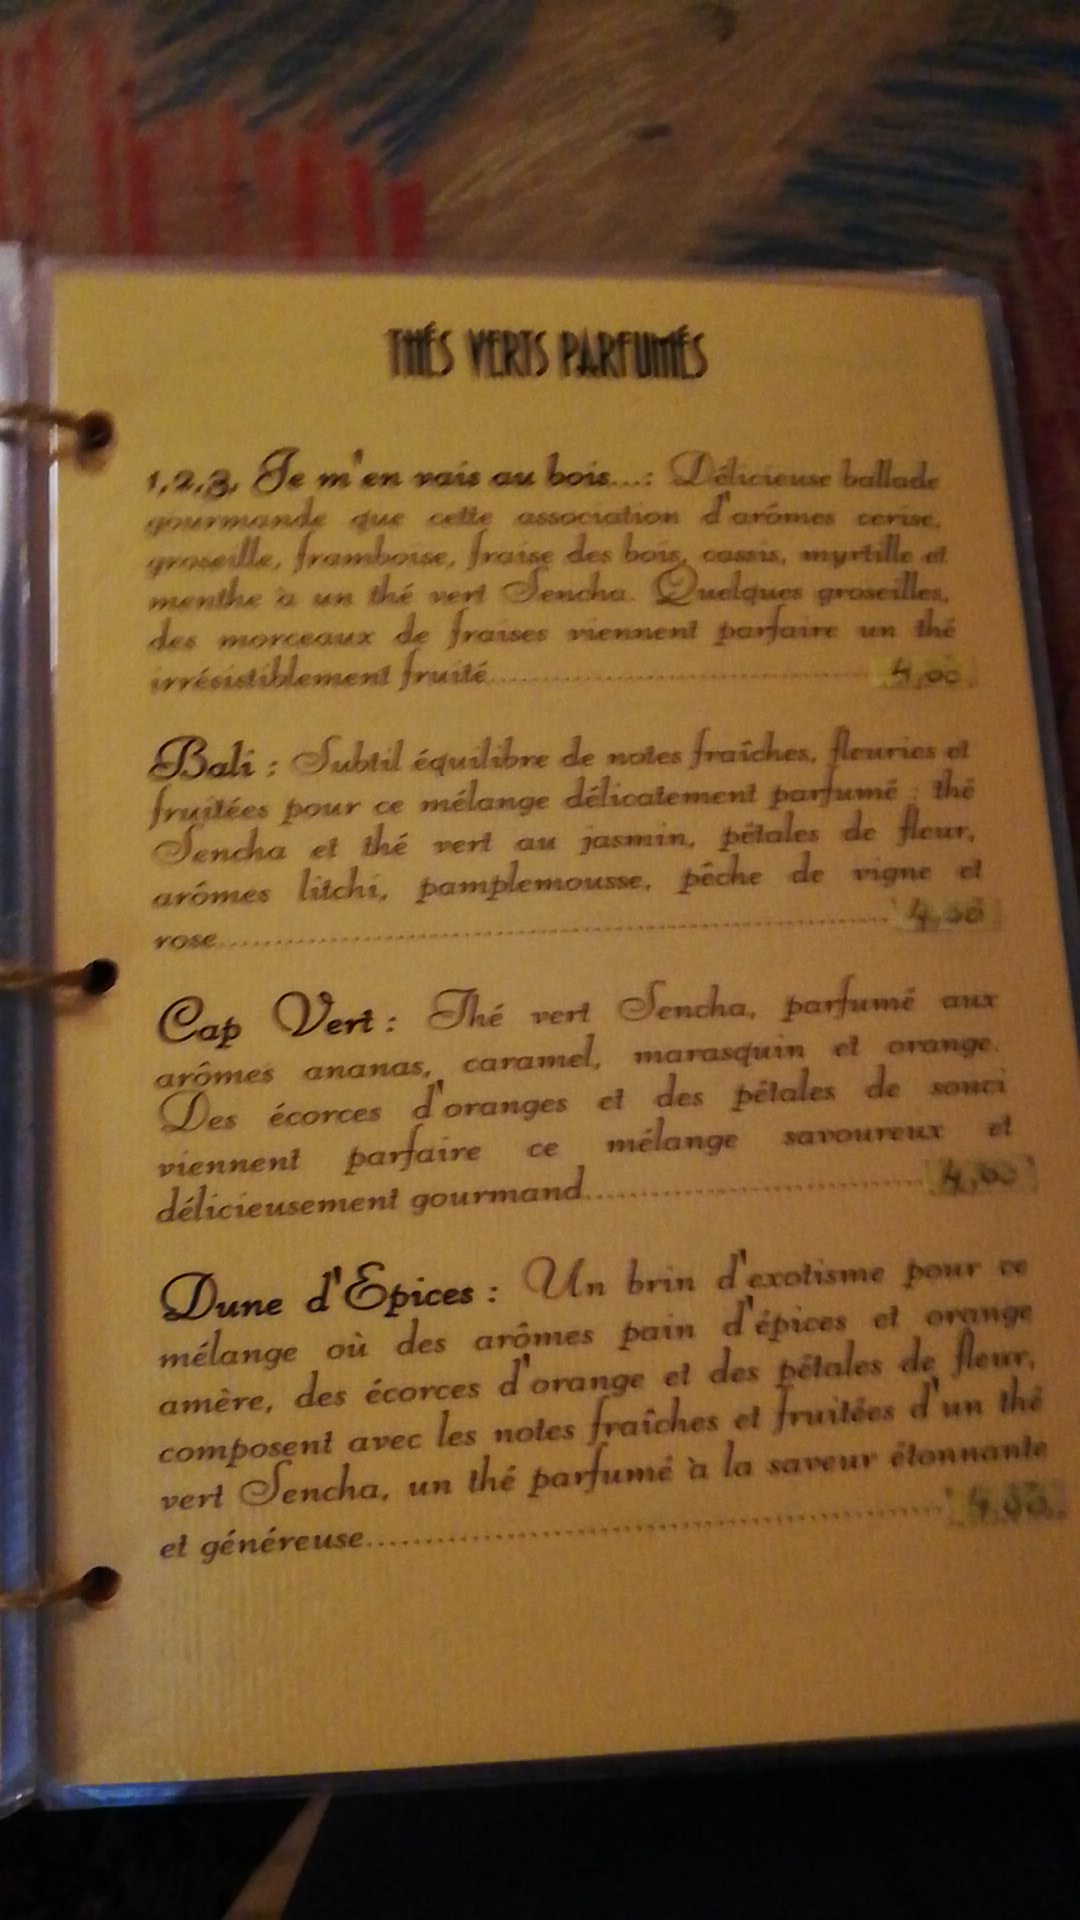 THÉS VERTS PARFUMÉS
1,2,3, Je m'en vais au bois...: Délicieuse ballade
gourmande que cette association d'arômes cerise,
groseille, framboise, fraise des bois, cassis, myrtille et
menthe à un thé vert Sencha. Quelques groseilles,
des morceaux de fraises viennent parfaire un thé
irrésistiblement fruité.................................................. 4,00
Bali : Subtil équilibre de notes fraîches, fleuries et
fruitées pour ce mélange délicatement parfumé : thé
Sencha et thé vert au jasmin, pétales de fleur,
arômes litchi, pamplemousse, pêche de vigne et
rose....................................................................................
Cap Vert : Thé vert Sencha, parfumé aux
arômes ananas, caramel, marasquin et orange.
Des écorces d'oranges et des pétales de souci
viennent parfaire ce mélange savoureux et
délicieusement gourmand.............................................
Dune d'Epices : Un brin d'exotisme pour ce
mélange où des arômes pain d'épices et orange
amère, des écorces d'orange et des pétales de fleur,
composent avec les notes fraîches et fruitées d'un thé
vert Sencha, un thé parfumé à la saveur étonnante
et généreuse.....................................................................